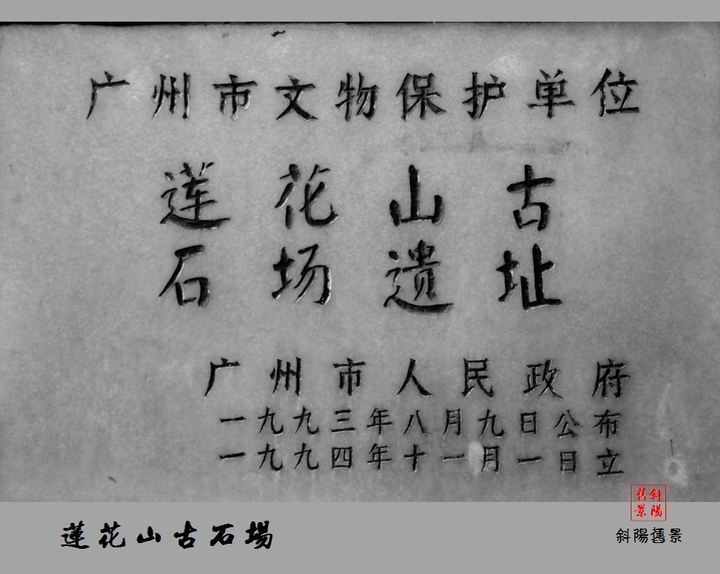 广州市文物保护单位
莲花山古
石场遗址
广州市人民政府
一九九三年八月九日公布
一九九四年十一月一日立
斜陽舊景
蓮花山古石場
斜陽舊景